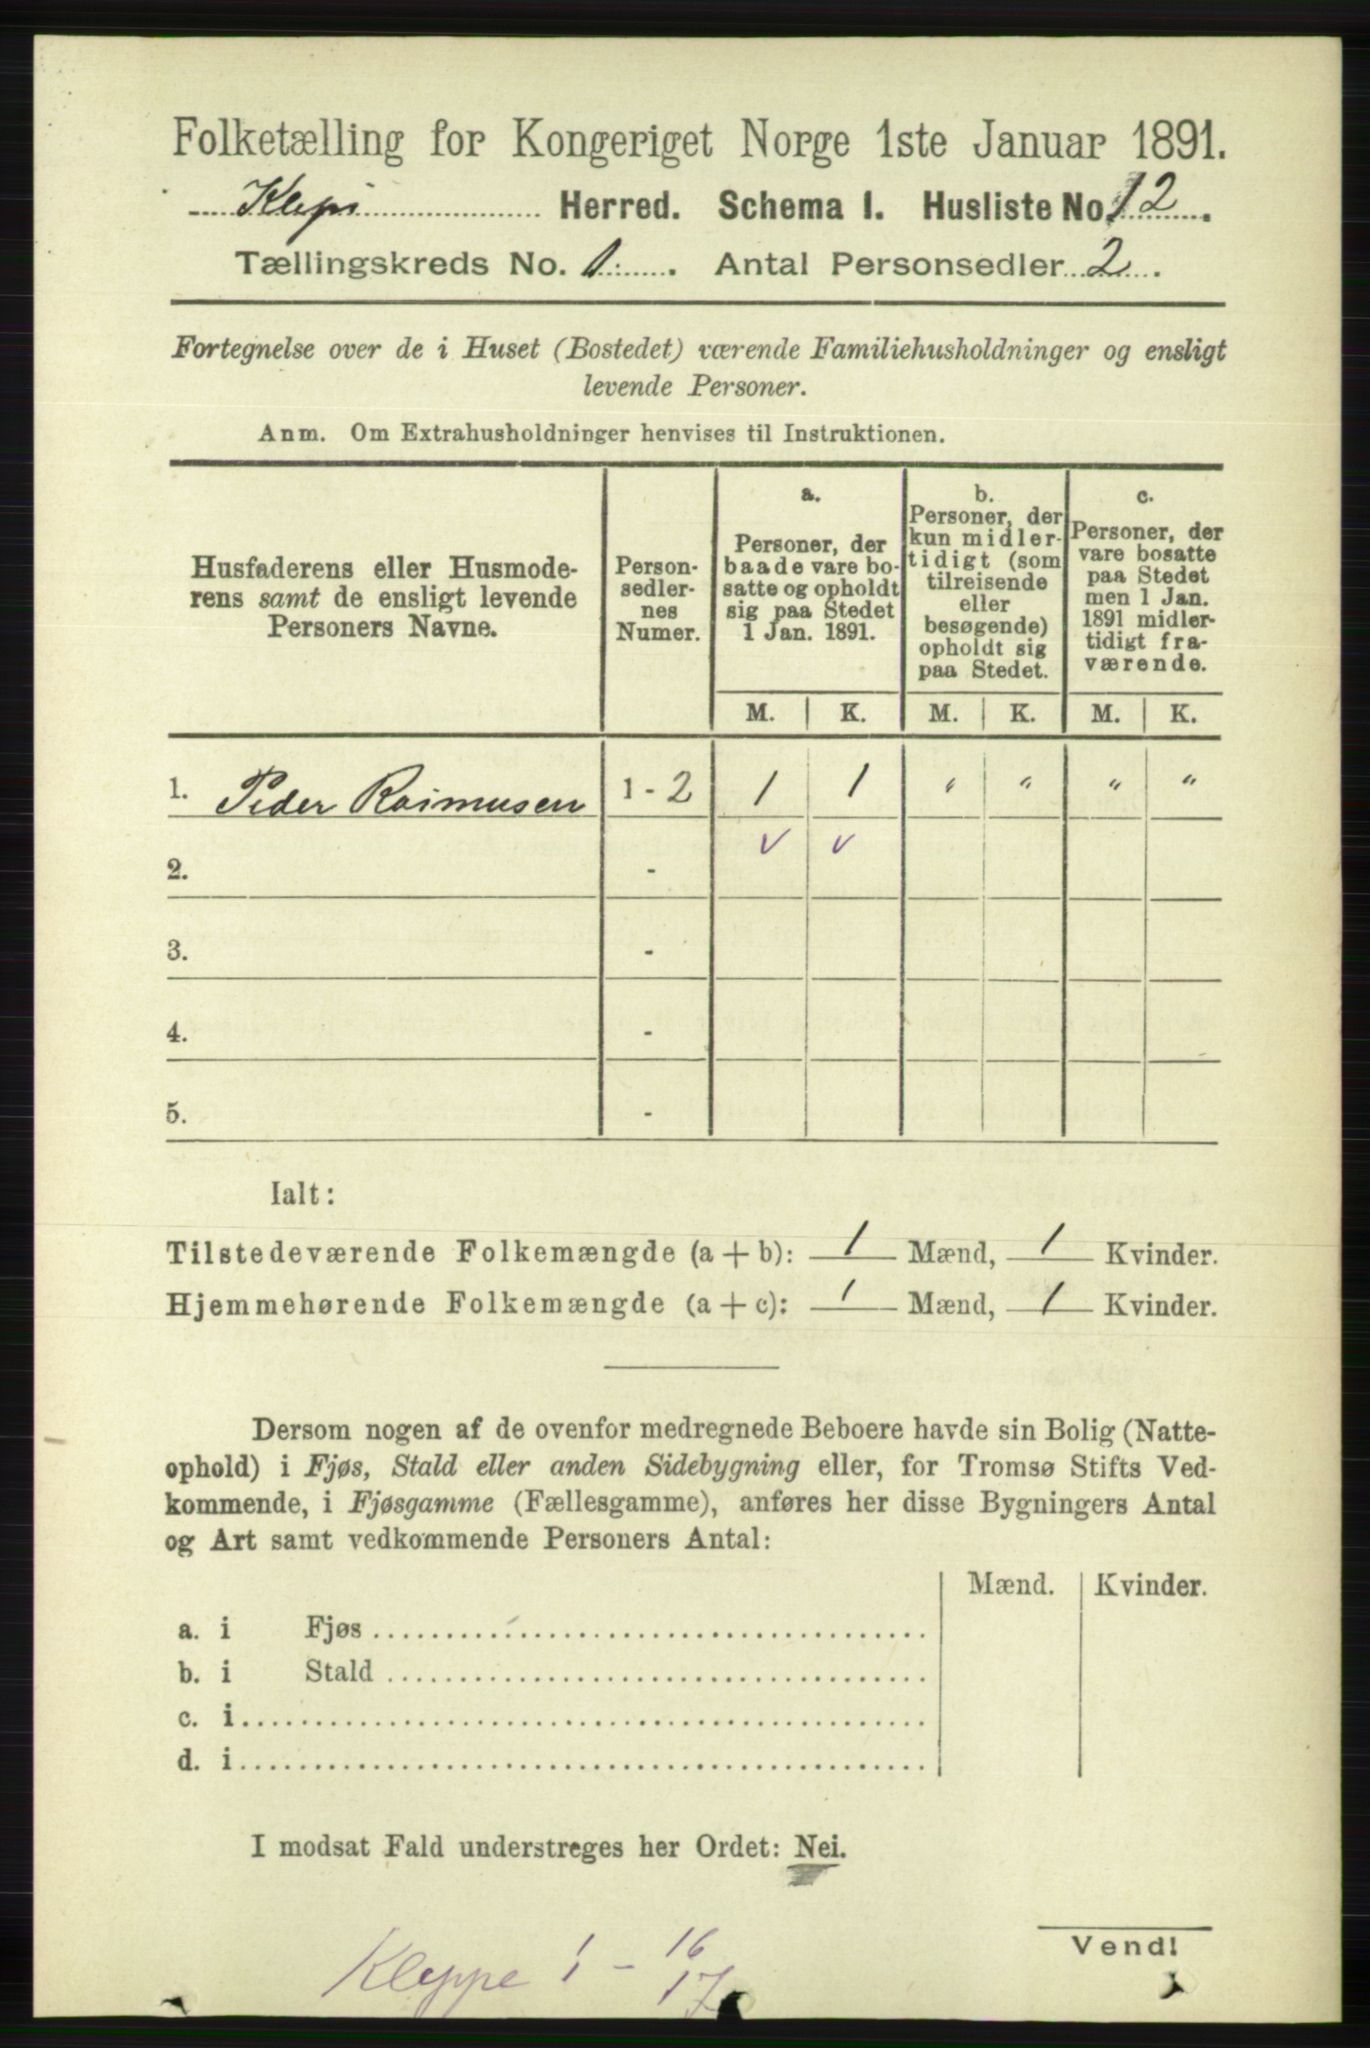 Folketælling for Kongeriget Norge 1ste Januar 1891.
Klepp Herred. Schema I. Husliste No. 12.
Tællingskreds No. 1. Antal Personsedler 2.
Fortegnelse over de i Huset (Bostedet) værende Familiehusholdninger og ensligt
levende Personer.
Anm. Om Extrahusholdninger henvises til Instruktionen.
Husfaderens eller Husmode-
rens samt de ensligt levende
Personers Navne.
Person-
sedler-
nes
Numer.
a.
Personer, der
baade vare bo-
satte og opholdt
sig paa Stedet
1 Jan. 1891.
b.
Personer, der
kun midler-
tidigt (som
tilreisende
eller
besøgende)
opholdt sig
paa Stedet.
c.
Personer, der
vare bosatte
paa Stedet
men 1 Jan.
1891 midler-
tidigt fra-
værende.
M. K. M. K. M. K.
1. Peder Rasmusen 1 - 2 1 1 " " " "
v v
2. -
3. -
4. -
5. -
Ialt:
Tilstedeværende Folkemængde (a + b): 1 Mænd, 1 Kvinder.
Hjemmehørende Folkemængde (a + c): 1 Mænd, 1 Kvinder.
Dersom nogen af de ovenfor medregnede Beboere havde sin Bolig (Natte-
ophold) i Fjøs, Stald eller anden Sidebygning eller, for Tromsø Stifts Ved-
kommende, i Fjøsgamme (Fællesgamme), anføres her disse Bygningers Antal
og Art samt vedkommende Personers Antal:
Mænd. Kvinder.
a. i Fjøs
b. i Stald
c. i
d. i
I modsat Fald understreges her Ordet: Nei.
Vend!
Kleppe 1 - 16
17